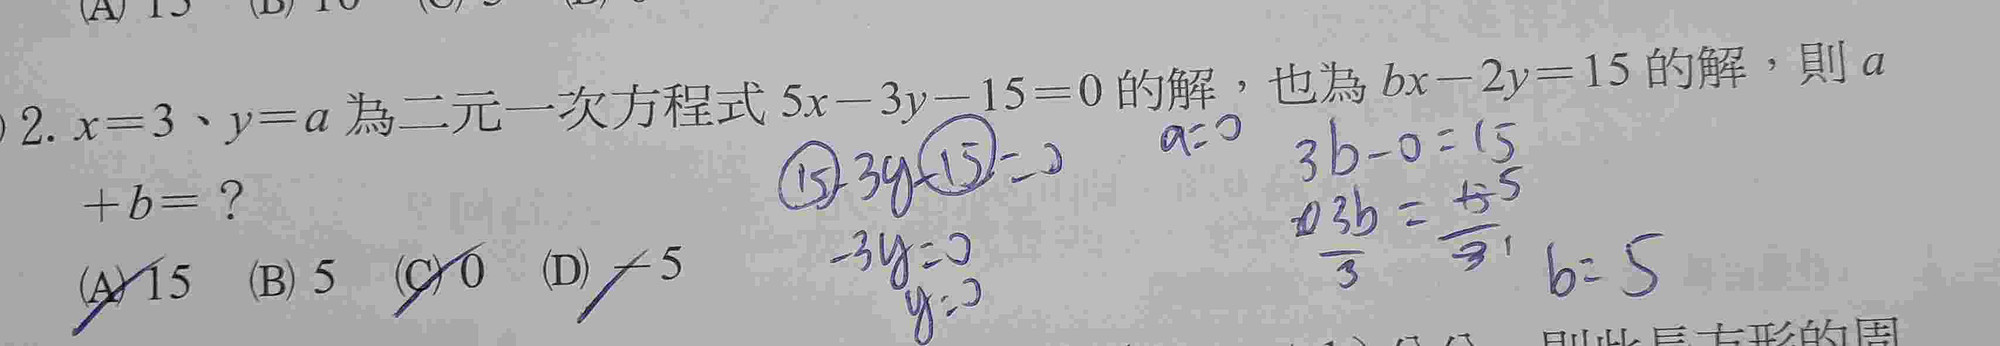 2. x=3、y=a 為二元一次方程式 5x-3y-15=0 的解，也為 bx-2y=15 的解，則 a
+b=？
(A) 15 (B) 5 (C) 0 (D) -5
15-3y-15=0
-3y=0
y=0
a=0
3b-0=15
3b/3 = 15/3
b=5
的周